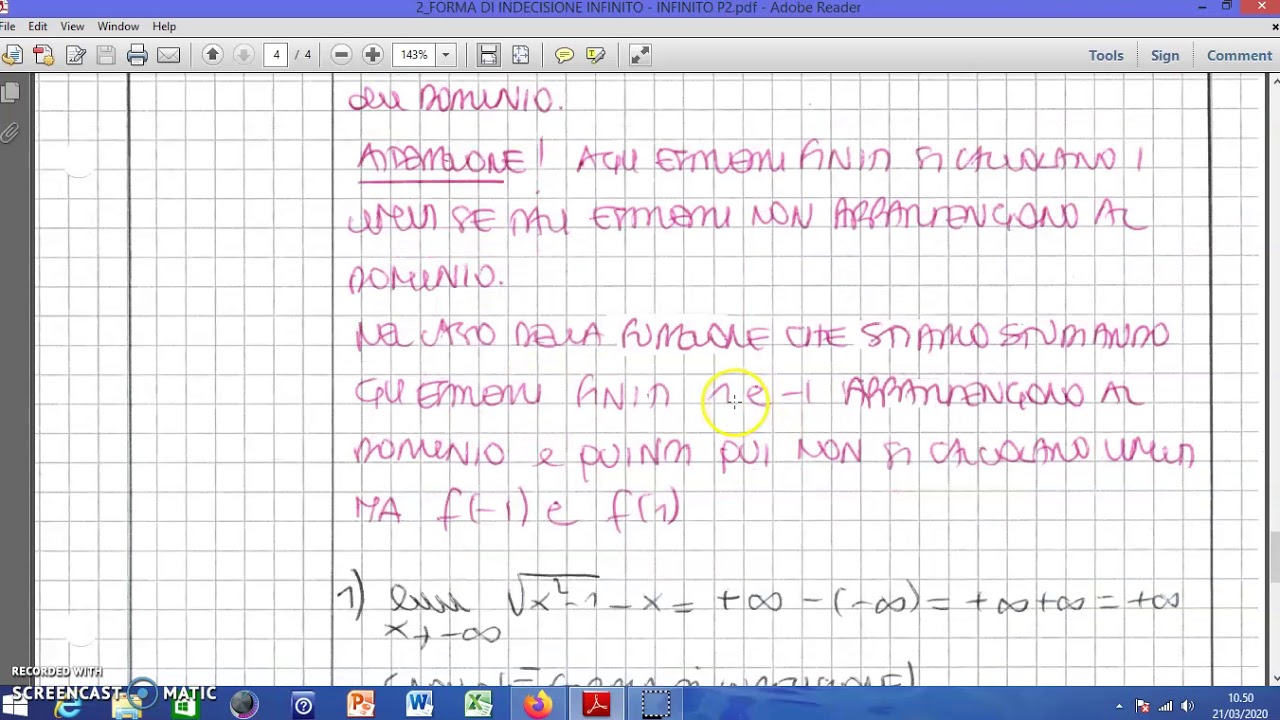 2_FORMA DI INDECISIONE INFINITO - INFINITO P2.pdf - Adobe Reader
File Edit View Window Help
4 / 4 143% Tools Sign Comment
DEL DOMINIO.
ATTENZIONE! AGLI ESTREMI FINITI SI CALCOLANO I
LIMITI SE TALI ESTREMI NON APPARTENGONO AL
DOMINIO.
NEL CASO DELLA FUNZIONE CHE STIAMO STUDIANDO
GLI ESTREMI FINITI 1 e -1 APPARTENGONO AL
DOMINIO e QUINDI QUI NON SI CALCOLANO LIMITI
MA f(-1) e f(1)
1) lim √x²-1 - x = +∞ - (-∞) = +∞+∞ = +∞
x→-∞
RECORDED WITH
SCREENCAST MATIC
10.50
21/03/2020